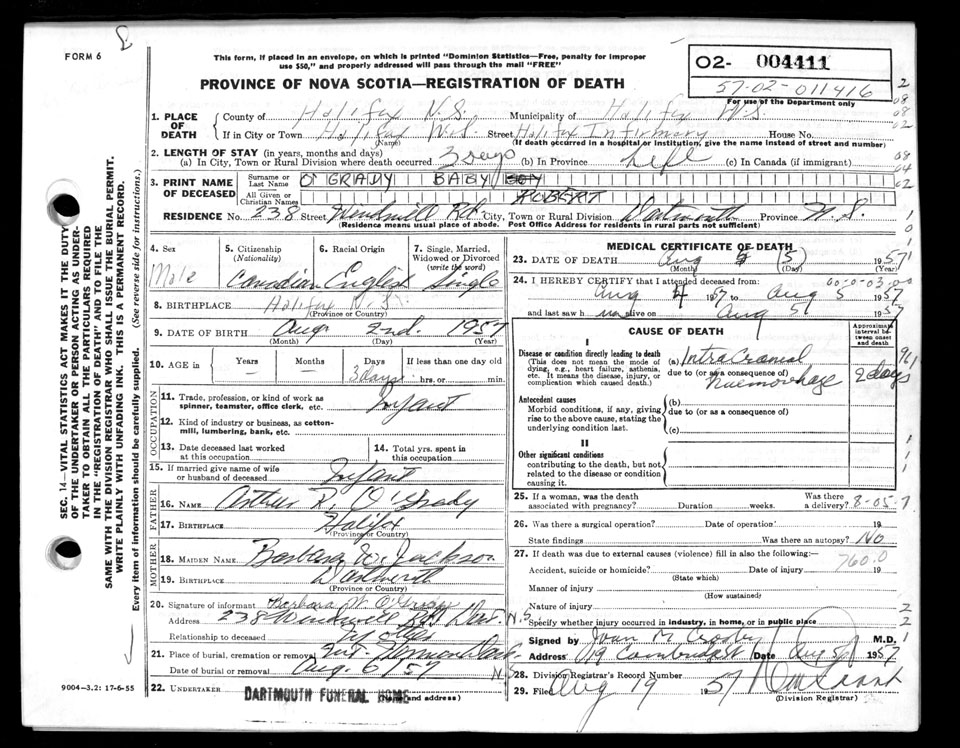 FORM 6
This form, if placed in an envelope, on which is printed "Dominion Statistics—Free, penalty for improper
use $50," and properly addressed will pass through the mail "FREE"
PROVINCE OF NOVA SCOTIA—REGISTRATION OF DEATH
02- 004411
57-02-011416
For use of the Department only
1. PLACE OF DEATH
County of Halifax N.S. Municipality of Halifax N.S.
If in City or Town Halifax N.S. Street Halifax Infirmary House No.
(Name) (If death occurred in a hospital or institution, give the name instead of street and number)
2. LENGTH OF STAY (in years, months and days)
(a) In City, Town or Rural Division where death occurred 3 days (b) In Province Life (c) In Canada (if immigrant)
3. PRINT NAME OF DECEASED
Surname or Last Name O'GRADY BABY BOY
All Given or Christian Names ROBERT
RESIDENCE No. 238 Street Windmill Rd. City, Town or Rural Division Dartmouth Province N.S.
(Residence means usual place of abode. Post Office Address for residents in rural parts not sufficient)
4. Sex Male
5. Citizenship (Nationality) Canadian
6. Racial Origin English
7. Single, Married, Widowed or Divorced (write the word) Single
8. BIRTHPLACE Halifax N.S.
(Province or Country)
9. DATE OF BIRTH Aug 2nd. 1957
(Month) (Day) (Year)
10. AGE in Years Months Days If less than one day old
3 days hrs. or min.
OCCUPATION
11. Trade, profession, or kind of work as spinner, teamster, office clerk, etc. Infant
12. Kind of industry or business, as cotton-mill, lumbering, bank, etc.
13. Date deceased last worked at this occupation
14. Total yrs. spent in this occupation
15. If married give name of wife or husband of deceased Infant
FATHER
16. NAME Arthur R. O'Grady
17. BIRTHPLACE Halifax
(Province or Country)
MOTHER
18. MAIDEN NAME Barbara W. Jackson
19. BIRTHPLACE Dartmouth
(Province or Country)
20. Signature of informant Barbara W. O'Grady
Address 238 Windmill Rd Dart. N.S.
Relationship to deceased
21. Place of burial, cremation or removal
Date of burial or removal Aug. 6 57
22. UNDERTAKER DARTMOUTH FUNERAL HOME
(Name and address)
MEDICAL CERTIFICATE OF DEATH
23. DATE OF DEATH Aug 5 1957
(Month) (Day) (Year)
24. I HEREBY CERTIFY that I attended deceased from:
Aug 4 1957 to Aug 5 1957
and last saw him alive on Aug 5 1957
CAUSE OF DEATH
Approximate interval between onset and death
I
Disease or condition directly leading to death
(This does not mean the mode of dying, e.g., heart failure, asthenia, etc. It means the disease, injury, or complication which caused death.)
(a) Intracranial
due to (or as a consequence of) haemorrhage 2 days
Antecedent causes
Morbid conditions, if any, giving rise to the above cause, stating the underlying condition last.
(b)
due to (or as a consequence of)
(c)
II
Other significant conditions
contributing to the death, but not related to the disease or condition causing it.
25. If a woman, was the death associated with pregnancy? Duration weeks. Was there a delivery? 8-05-7
26. Was there a surgical operation? Date of operation 19
State findings Was there an autopsy? No
27. If death was due to external causes (violence) fill in also the following:—
760.0
Accident, suicide or homicide? Date of injury 19
(State which)
Manner of injury
(How sustained)
Nature of injury
Specify whether injury occurred in industry, in home, or in public place
Signed by Joan M. Crosby M.D.
Address 019 Cambridge St Date Aug 5 1957
28. Division Registrar's Record Number
29. Filed Aug 19 1957
(Division Registrar)
SEC. 14—VITAL STATISTICS ACT MAKES IT THE DUTY
OF THE UNDERTAKER OR PERSON ACTING AS UNDER-
TAKER TO OBTAIN ALL THE PARTICULARS REQUIRED
IN THE "REGISTRATION OF DEATH" AND TO FILE THE
SAME WITH THE DIVISION REGISTRAR WHO SHALL ISSUE THE BURIAL PERMIT.
WRITE PLAINLY WITH UNFADING INK. THIS IS A PERMANENT RECORD.
Every item of information should be carefully supplied. (See reverse side for instructions.)
9004—3.2: 17-6-55